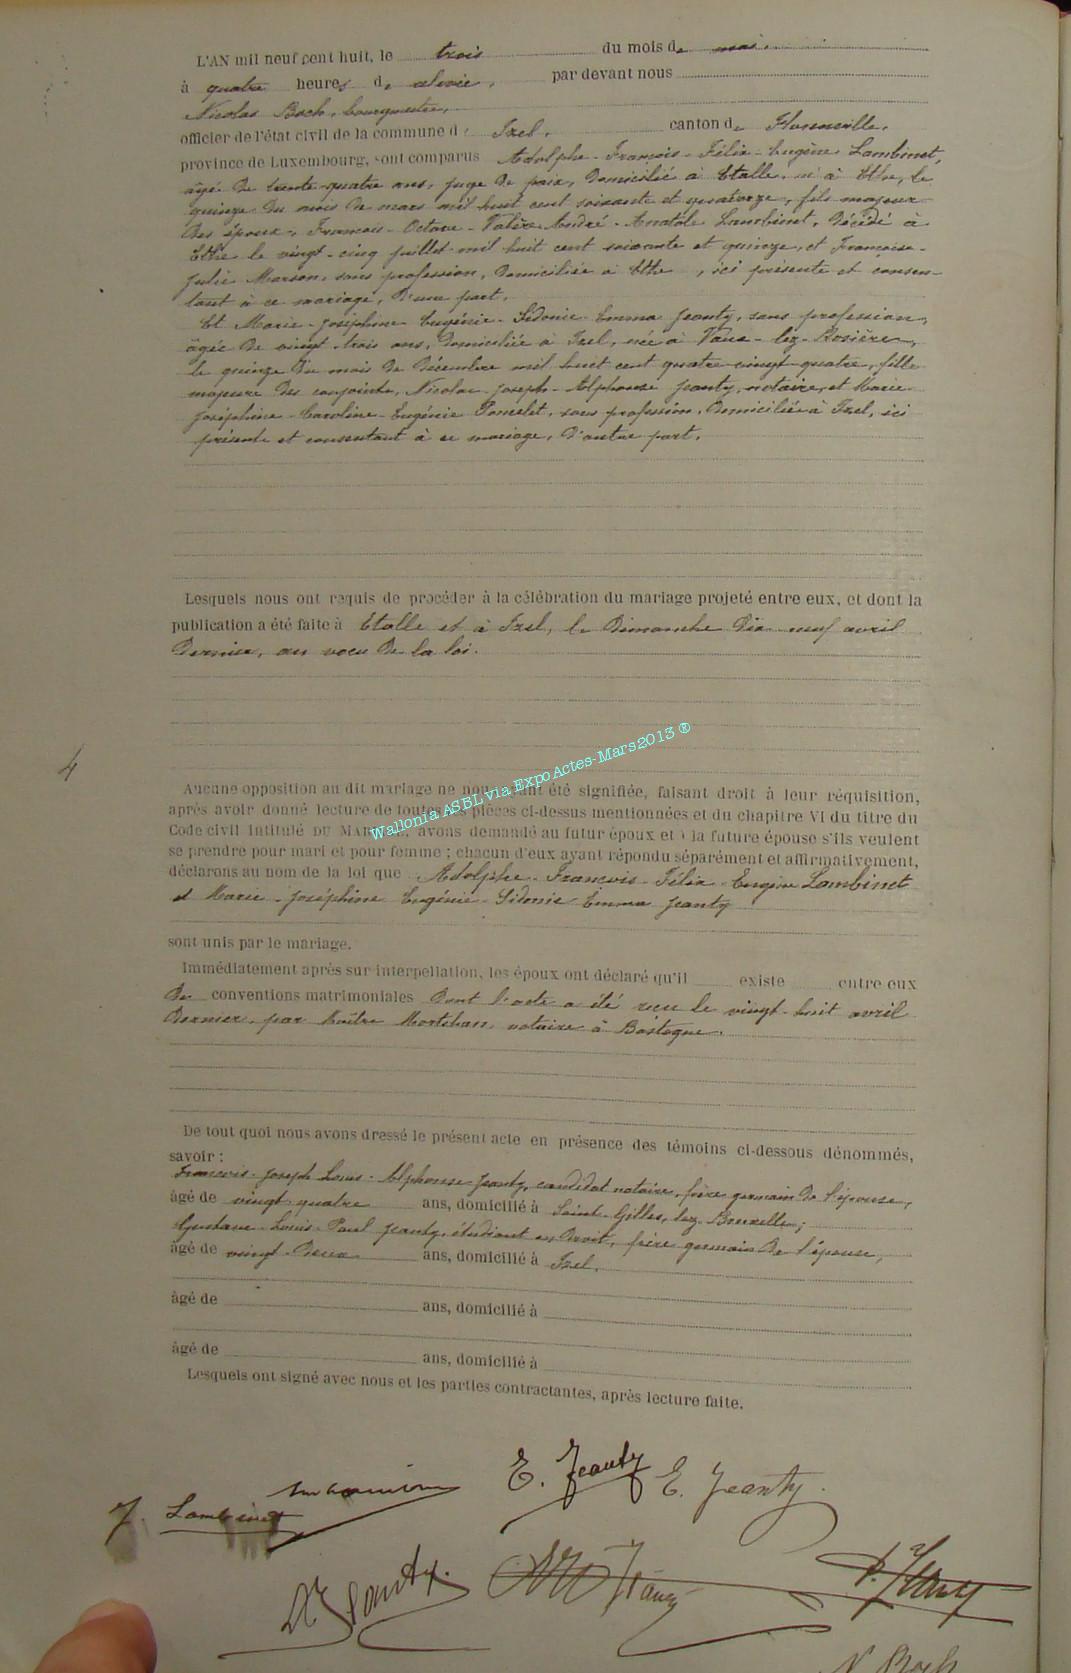 L'AN mil neuf cent huit, le trois du mois de mai.
à quatre heures de relevée, par devant nous
Nicolas Boch, bourgmestre,
officier de l'état civil de la commune d' Izel, canton de Florenville,
province de Luxembourg, sont comparus Adolphe-François-Félix-Eugène Lambinet,
âgé de trente-quatre ans, juge de paix, domicilié à Etalle, né à Ethe, le
quinze du mois de mars mil huit cent soixante et quatorze, fils majeur
des époux, François-Octave-Valère-André-Anatole Lambinet, décédé à
Ethe le vingt-cinq juillet mil huit cent soixante et quinze, et Françoise-
Julie Marson, sans profession, domiciliée à Ethe, ici présente et consen-
tant à ce mariage, d'une part.
Et Marie-Joséphine-Eugénie-Sidonie-Emma Jeanty, sans profession,
âgée de vingt-trois ans, domiciliée à Izel, née à Vaux-lez-Rosières,
le quinze du mois de décembre mil huit cent quatre-vingt-quatre, fille
majeure des conjoints, Nicolas-Joseph-Alphonse Jeanty, notaire, et Marie-
Joséphine-Caroline-Eugénie Poncelet, sans profession, domiciliés à Izel, ici
présents et consentant à ce mariage, d'autre part.
Lesquels nous ont requis de procéder à la célébration du mariage projeté entre eux, et dont la
publication a été faite à Etalle et à Izel, le Dimanche dix-neuf avril
dernier, au voeu de la loi.
4
Wallonia ASBL via ExpoActes-Mars2013 ®
Aucune opposition au dit mariage ne nous ayant été signifiée, faisant droit à leur réquisition,
après avoir donné lecture de toutes les pièces ci-dessus mentionnées et du chapitre VI du titre du
Code civil intitulé DU MARIAGE, avons demandé au futur époux et à la future épouse s'ils veulent
se prendre pour mari et pour femme ; chacun d'eux ayant répondu séparément et affirmativement,
déclarons au nom de la loi que Adolphe-François-Félix-Eugène Lambinet
et Marie-Joséphine Eugénie-Sidonie Emma Jeanty
sont unis par le mariage.
Immédiatement après sur interpellation, les époux ont déclaré qu'il existe entre eux
des conventions matrimoniales dont l'acte a été reçu le vingt-huit avril
dernier, par Maître Mortehan, notaire à Bastogne.
De tout quoi nous avons dressé le présent acte en présence des témoins ci-dessous dénommés,
savoir :
François-Joseph-Louis-Alphonse Jeanty, candidat notaire, frère germain de l'épouse,
âgé de vingt-quatre ans, domicilié à Saint-Gilles, lez-Bruxelles;
Gustave-Louis-Paul Jeanty, étudiant en Droit, frère germain de l'épouse,
âgé de vingt-deux ans, domicilié à Izel.
âgé de ans, domicilié à
âgé de ans, domicilié à
Lesquels ont signé avec nous et les parties contractantes, après lecture faite.
E. Jeanty E. Jeanty
Lambinet
Jeanty
Jeanty
P. Jeanty
N. Boch